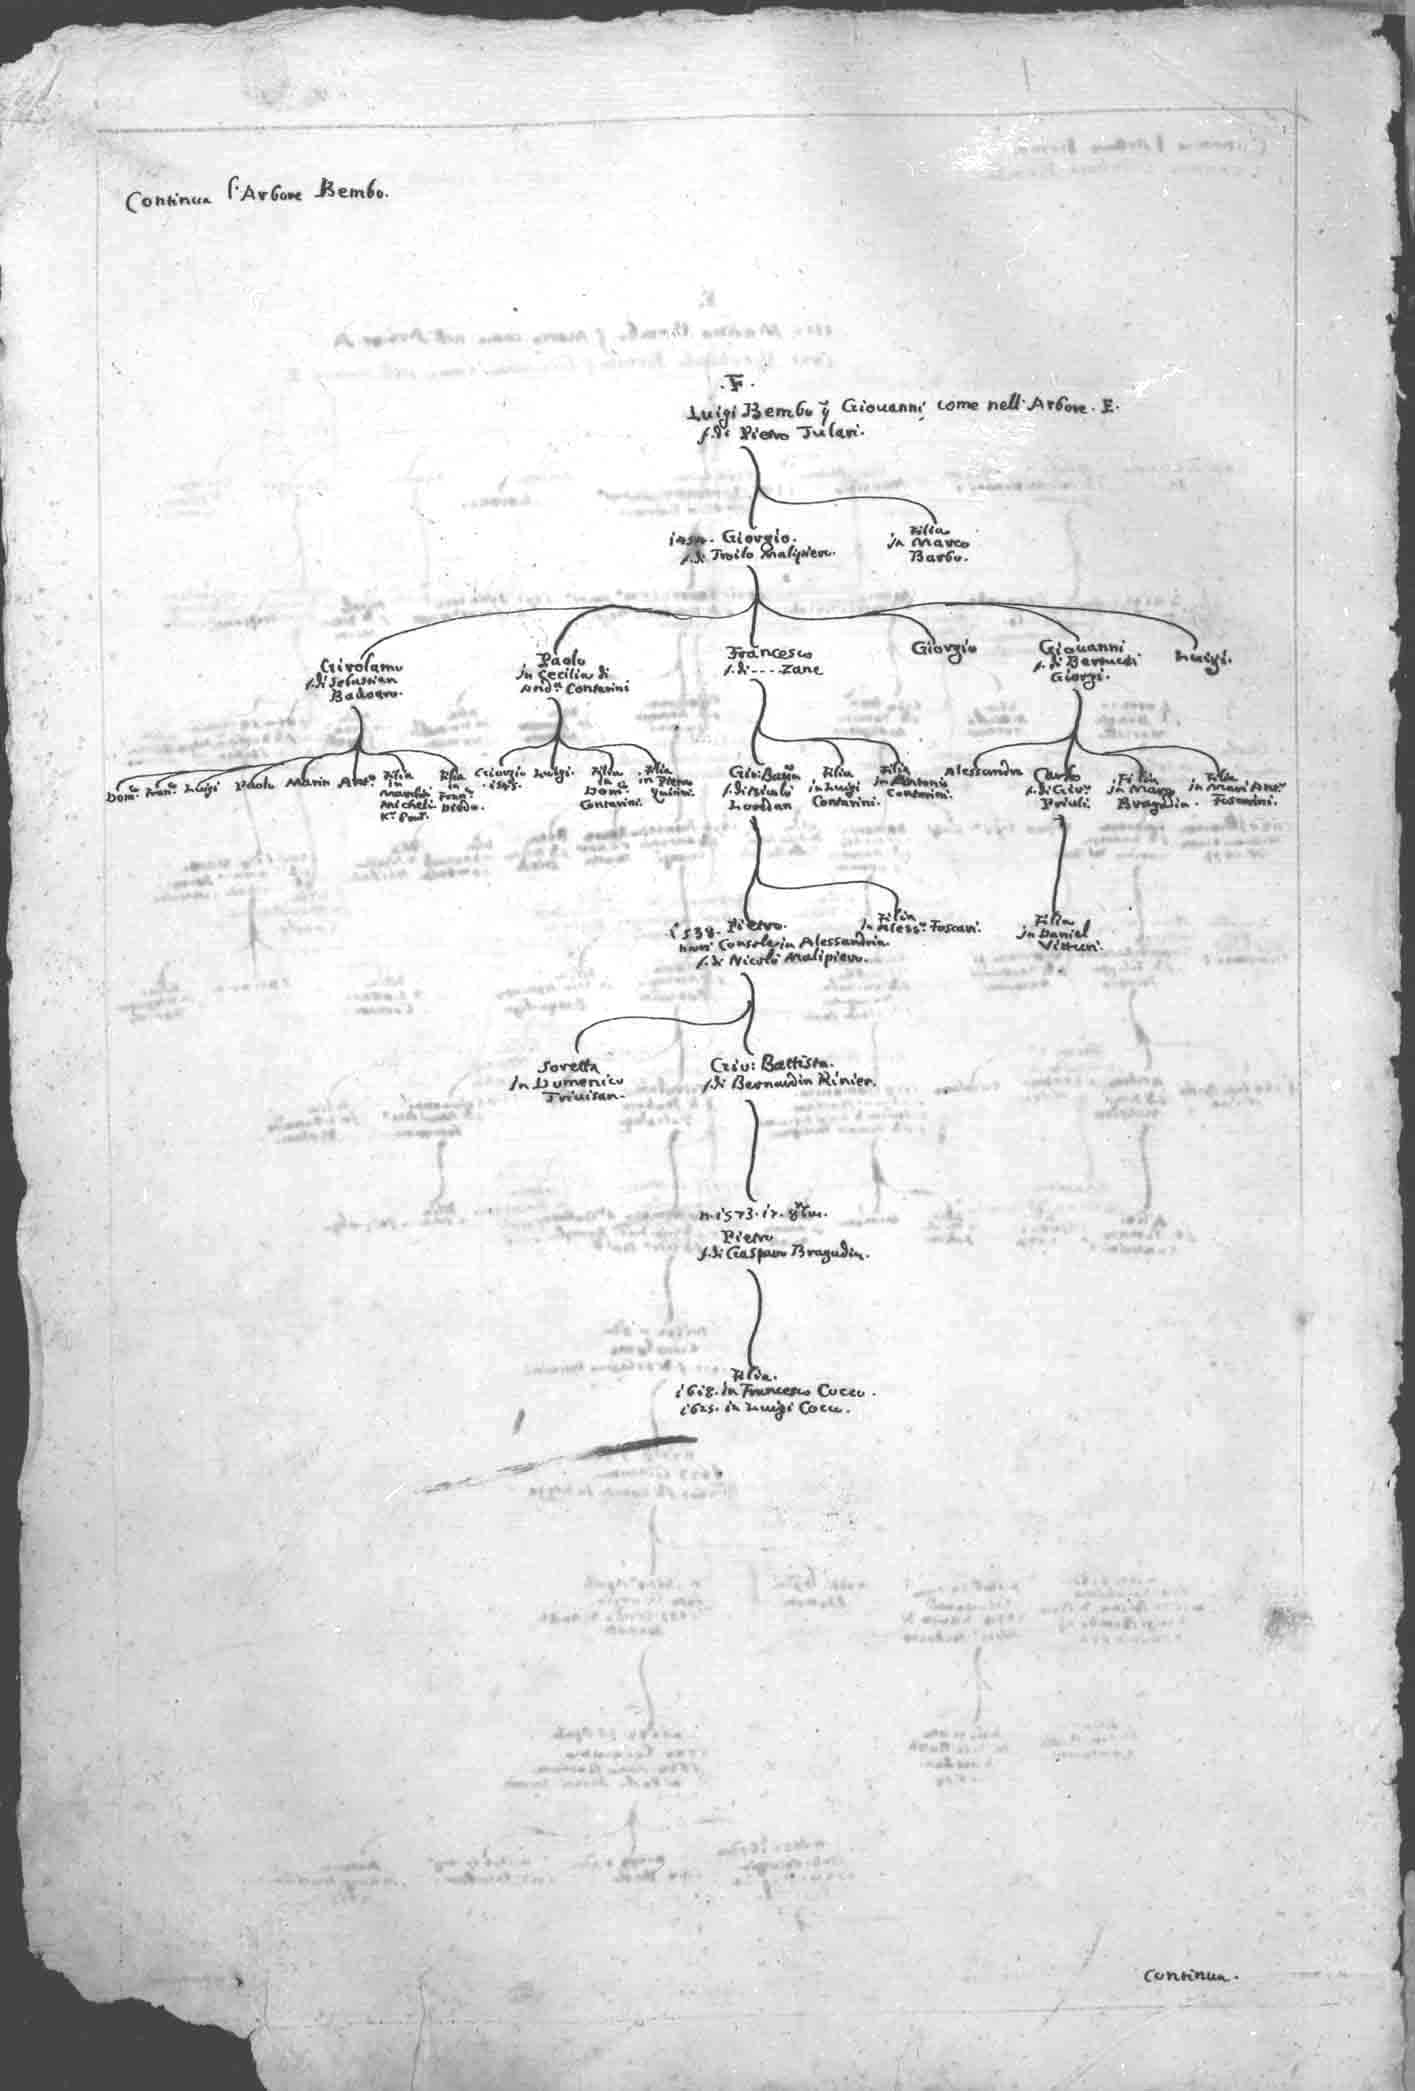 Continua l'Arbore Bembo.
.F.
Luigi Bembo q Giouanni, come nell'Arbore. E.
f. di Pietro Tulari.
1454. Giorgio.
f. di Troilo Malipiero.
Filia
in Marco
Barbo.
Girolamo
f. di Sebastian
Badoaro.
Paolo
in Cecilia di
And.ª Contarini
Francesco
f. di ---- Zane
Giorgio
Giouanni
f. di Bertucci
Giorgi.
Luigi.
Dom.co
Fran.co
Luigi
Paolo
Marin
Ant.o
Filia
in
Marchiò
Micheli
K.r Proc.r
Filia
in
Fran.co
Diedo.
Giorgio
Luigi.
Filia
in
Dom.co
Contarini.
Filia
in Piero
Quirini.
Gio: Batta
f. di Nicolò
Loredan
Filia
in Luigi
Contarini.
Filia
in Antonio
Contarini.
Alessandro
Carlo
f. di Gio:
Priuli.
Filia
in Marco
Bragadin.
Filia
in Mari' Ant.o
Foscarini.
1538. Pietro.
Console in Alessandria.
f. di Nicolò Malipiero.
Filia
in Aless.o Foscari.
Filia
in Daniel
Vitturi.
Sorella
in Domenico
Triuisan.
Gio: Battista.
f. di Bernardin Rinier.
n. 1573. 17. 8bre.
Pietro
f. di Gasparo Bragadin.
Filia.
1618. in Francesco Cocco.
1625. in Luigi Cocco.
Continua.